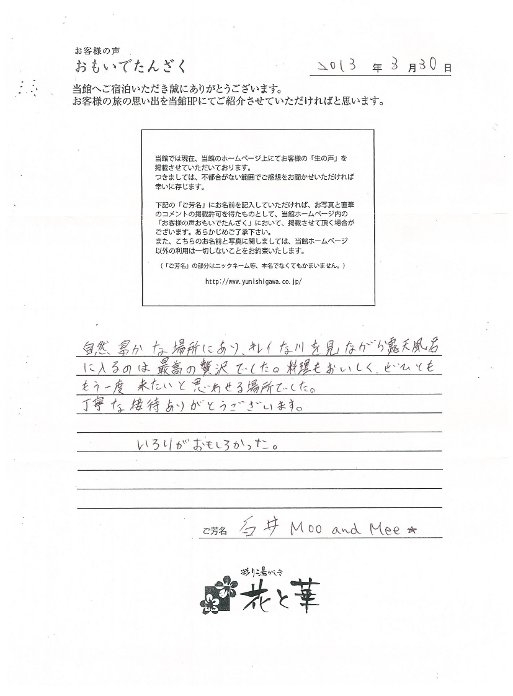 お客様の声
おもいでたんざく
2013 年 3 月 30 日
当館へご宿泊いただき誠にありがとうございます。
お客様の旅の思い出を当館HPにてご紹介させていただければと思います。
当館では現在、当館のホームページ上にてお客様の「生の声」を
掲載させていただいております。
つきましては、不都合がない範囲でご感想をお聞かせいただければ
幸いに存じます。
下記の「ご芳名」にお名前を記入していただければ、お写真と直筆
のコメントの掲載許可を得たものとして、当館ホームページ内の
「お客様の声おもいでたんざく」において、掲載させて頂く場合が
ございます。あらかじめご了承下さい。
また、こちらのお名前と写真に関しましては、当館ホームページ
以外の利用は一切しないことをお約束いたします。
(「ご芳名」の部分はニックネーム等、本名でなくてもかまいません。)
http://www.yunishigawa.co.jp/
自然豊かな場所にあり、キレイな川を見ながら露天風呂
に入るのは最高の贅沢でした。料理もおいしく、ぜひとも
もう一度 来たいと思わせる場所でした。
丁寧な接待ありがとうございます。
いろりがおもしろかった。
ご芳名 Moo and Mee ★
花と華